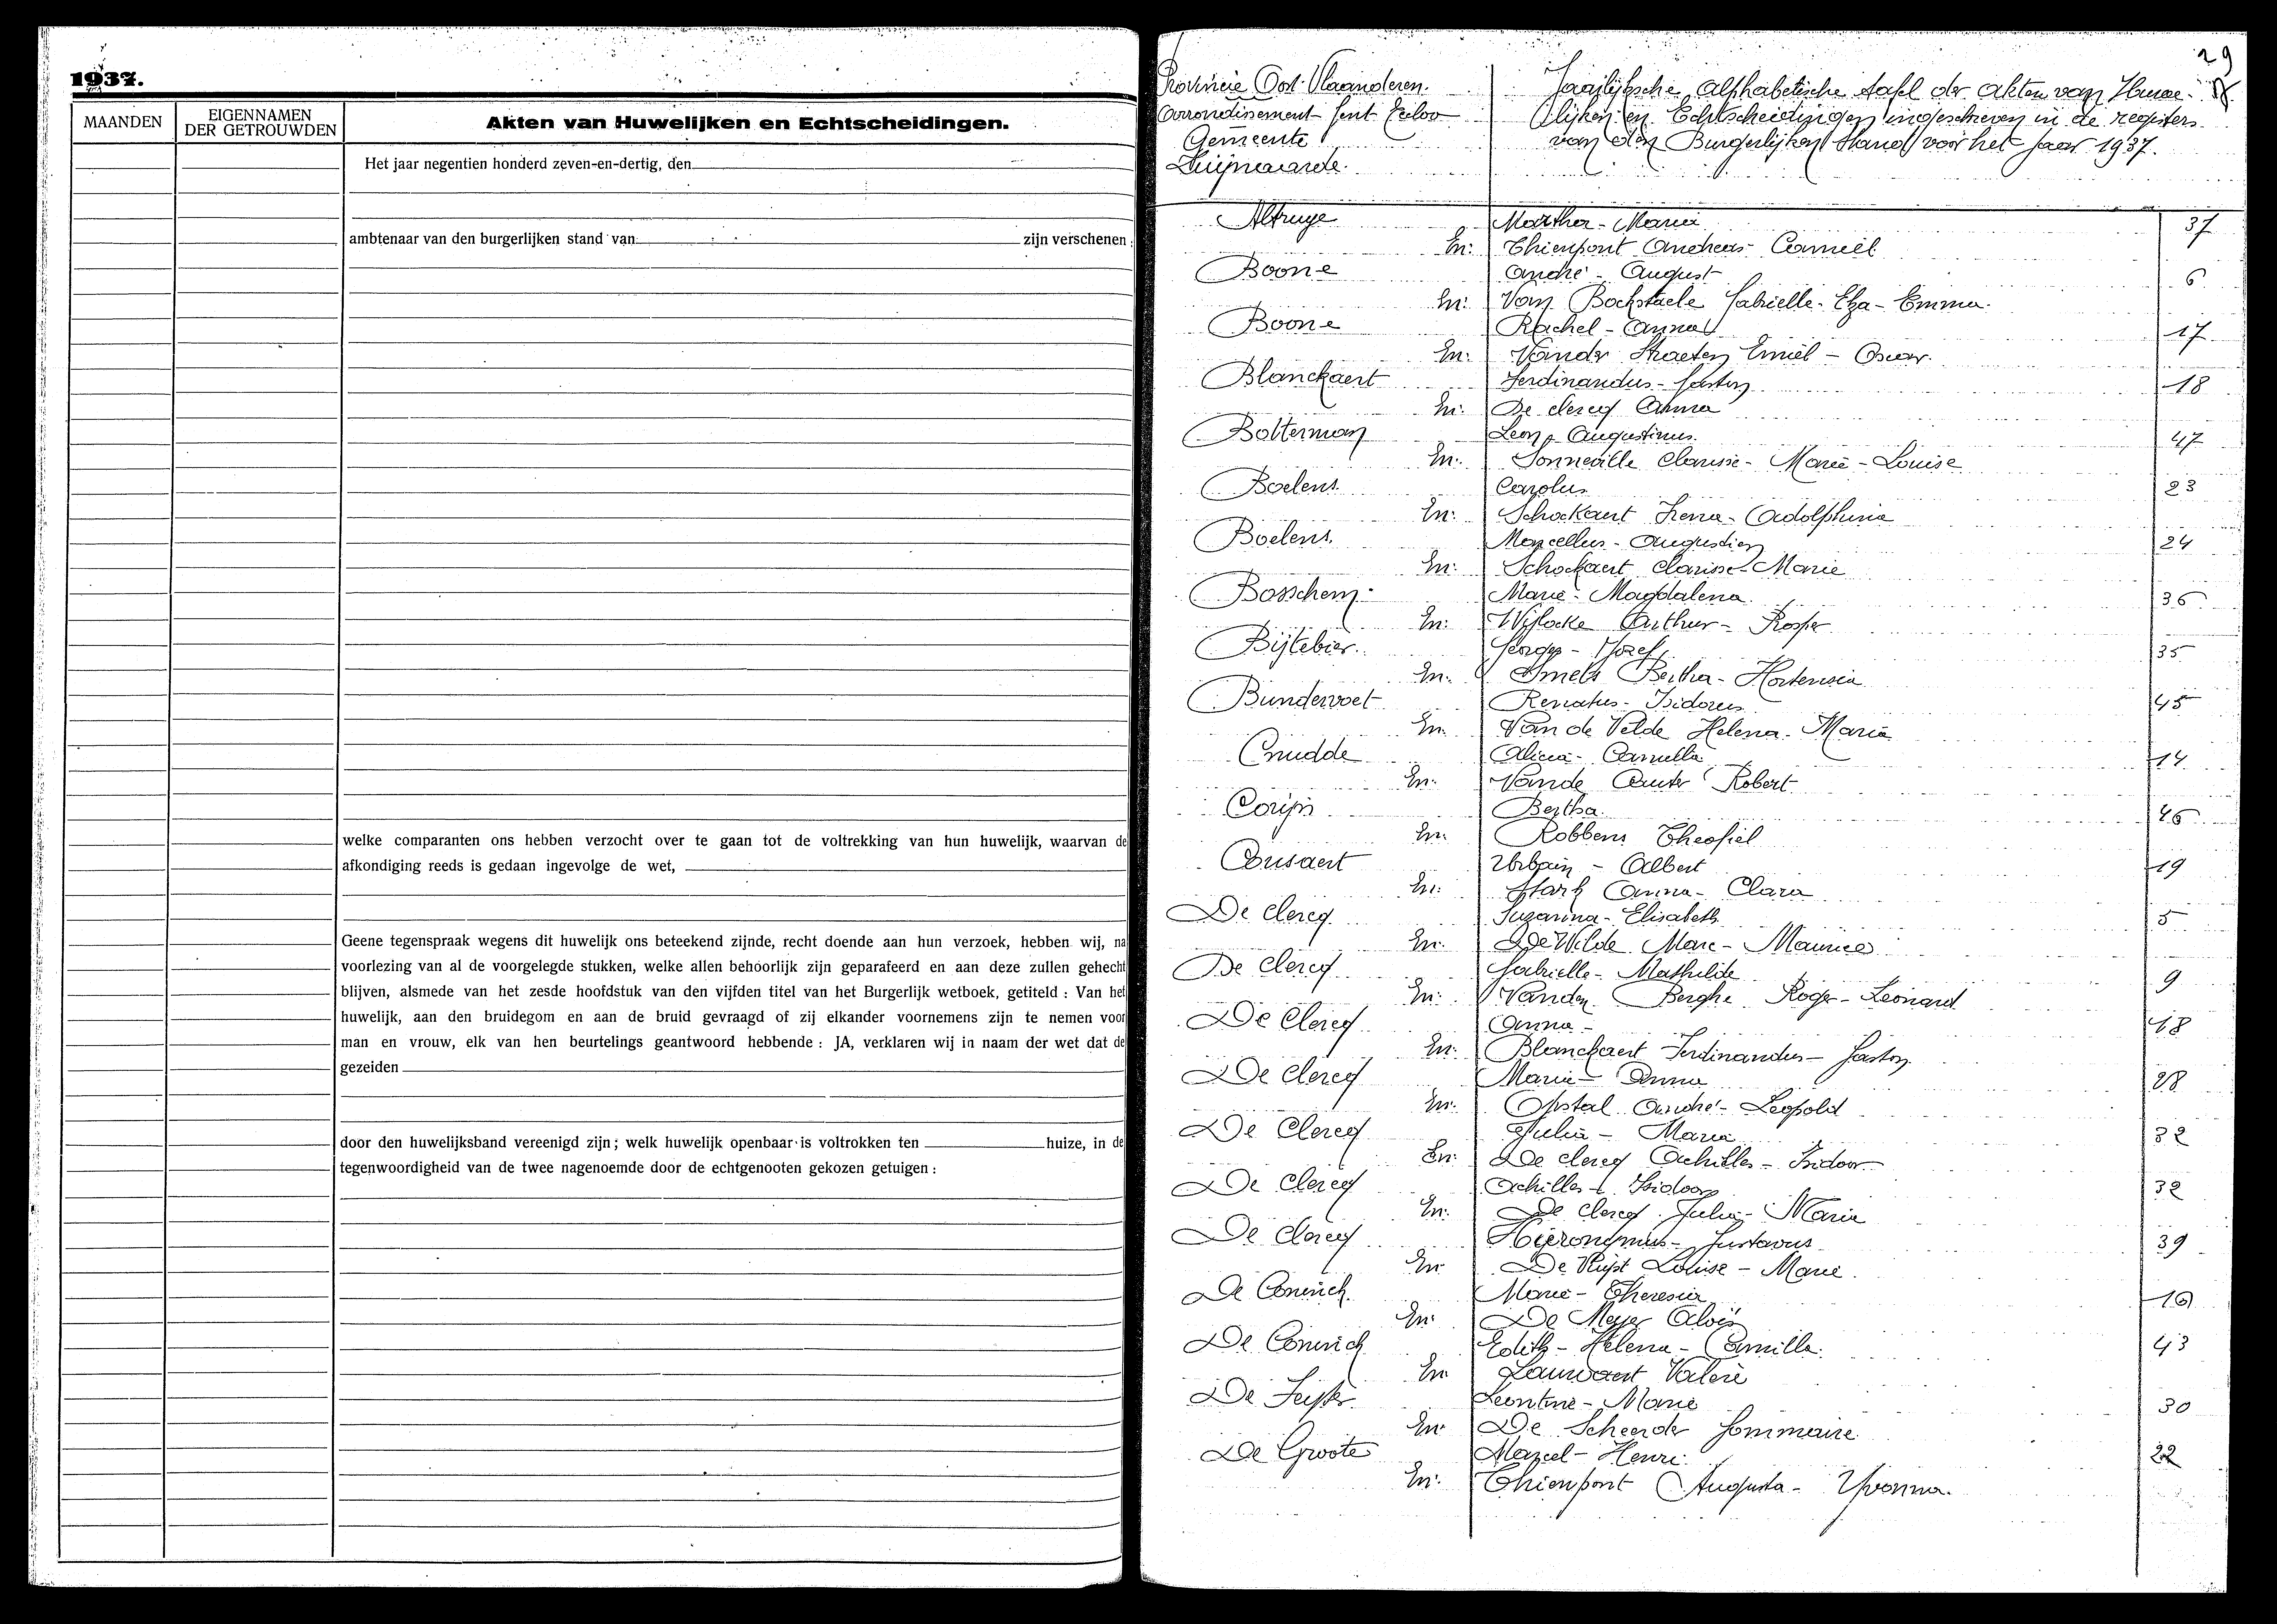 1937.
MAANDEN
EIGENNAMEN
DER GETROUWDEN
Akten van Huwelijken en Echtscheidingen.
Het jaar negentien honderd zeven-en-dertig, den
ambtenaar van den burgerlijken stand van zijn verschenen
welke comparanten ons hebben verzocht over te gaan tot de voltrekking van hun huwelijk, waarvan de
afkondiging reeds is gedaan ingevolge de wet,
Geene tegenspraak wegens dit huwelijk ons beteekend zijnde, recht doende aan hun verzoek, hebben wij, na
voorlezing van al de voorgelegde stukken, welke allen behoorlijk zijn geparafeerd en aan deze zullen gehecht
blijven, alsmede van het zesde hoofdstuk van den vijfden titel van het Burgerlijk wetboek, getiteld : Van het
huwelijk, aan den bruidegom en aan de bruid gevraagd of zij elkander voornemens zijn te nemen voor
man en vrouw, elk van hen beurtelings geantwoord hebbende : JA, verklaren wij in naam der wet dat de
gezeiden
door den huwelijksband vereenigd zijn ; welk huwelijk openbaar is voltrokken ten huize, in de
tegenwoordigheid van de twee nagenoemde door de echtgenooten gekozen getuigen :
29
Provincie Oost-Vlaanderen.
Arrondisement Gent Eecloo
Gemeente
Zwijnaarde.
Jaarlijksche Alphabetische tafel der akten van Huwe-
lijken en Echtscheidingen ingeschreven in de registers
van den Burgerlijken Stand voor het jaar 1937.
Martha-Maria 37
En: Thienpont Andreas-Camiel
Boone André-August 6
En: Van Bockstaele Gabrielle-Elza-Emma.
Boone Rachel-Anna 17
En: Vander Straeten Emiel-Oscar.
Blanckaert Ferdinandus-Gaston 18
En: De clercq Anna
Bolterman Leon-Augustinus. 47
En: Sonneville Clarisse-Marie-Louise
Boelens Carolus 23
En: Schockaert Irena-Adolphina
Boelens Marcellus-Augustien 24
En: Schockaert Clarisse-Marie
Bosschem Marie-Magdalena 36
En: Arthur-
Bijtebier Georges-Jozef 35
En: Smets Bertha-Hortensia
Bundervoet Renatus-Isidorus 45
En: Van de Velde Helena-Maria
Cnudde Alicia-Camilla 14
En: Vande Robert
Corijn Bertha. 46
En: Robbens Theofiel
Cousaert Urbain-Albert 19
En: Anna-Clara
De clercq Suzanna-Elisabeth 5
En: De Wilde Marc-Maurice
De clercq Gabrielle-Mathilde 9
En: Vanden Berghe Roger-Leonard
De Clercq Anna- 18
En: Blanckaert Ferdinandus-Gaston
De clercq Maria-Anna 28
En: Opstal André-Leopold
De Clercq Julia-Maria 32
En: De clercq Achilles-Isidoor
De Clercq Achilles-Isidoor 32
En: De clercq Julia-Maria
De clercq Hieronymus-Gustavus 39
En De Ruyst Louise-Marie.
De Coninck Marie-Theresia 10
En: De Meyer Aloïs
De Coninck Edith-Helena-Camilla. 43
En Lauwaert Valère
De Leontine-Marie 30
En De Scheerder Gommaire
De Groote Marcel-Henri. 22
En: Thienpont Augusta-Yvonna.